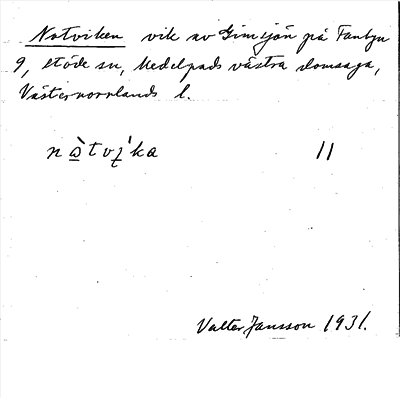 Notviken vik av Gimsjön på Fanbyn
9, Stöde sn, Medelpads västra domsaga,
Västernorrlands l.
nɷ̀tvi̢ka 11
Valter Jansson 1931.